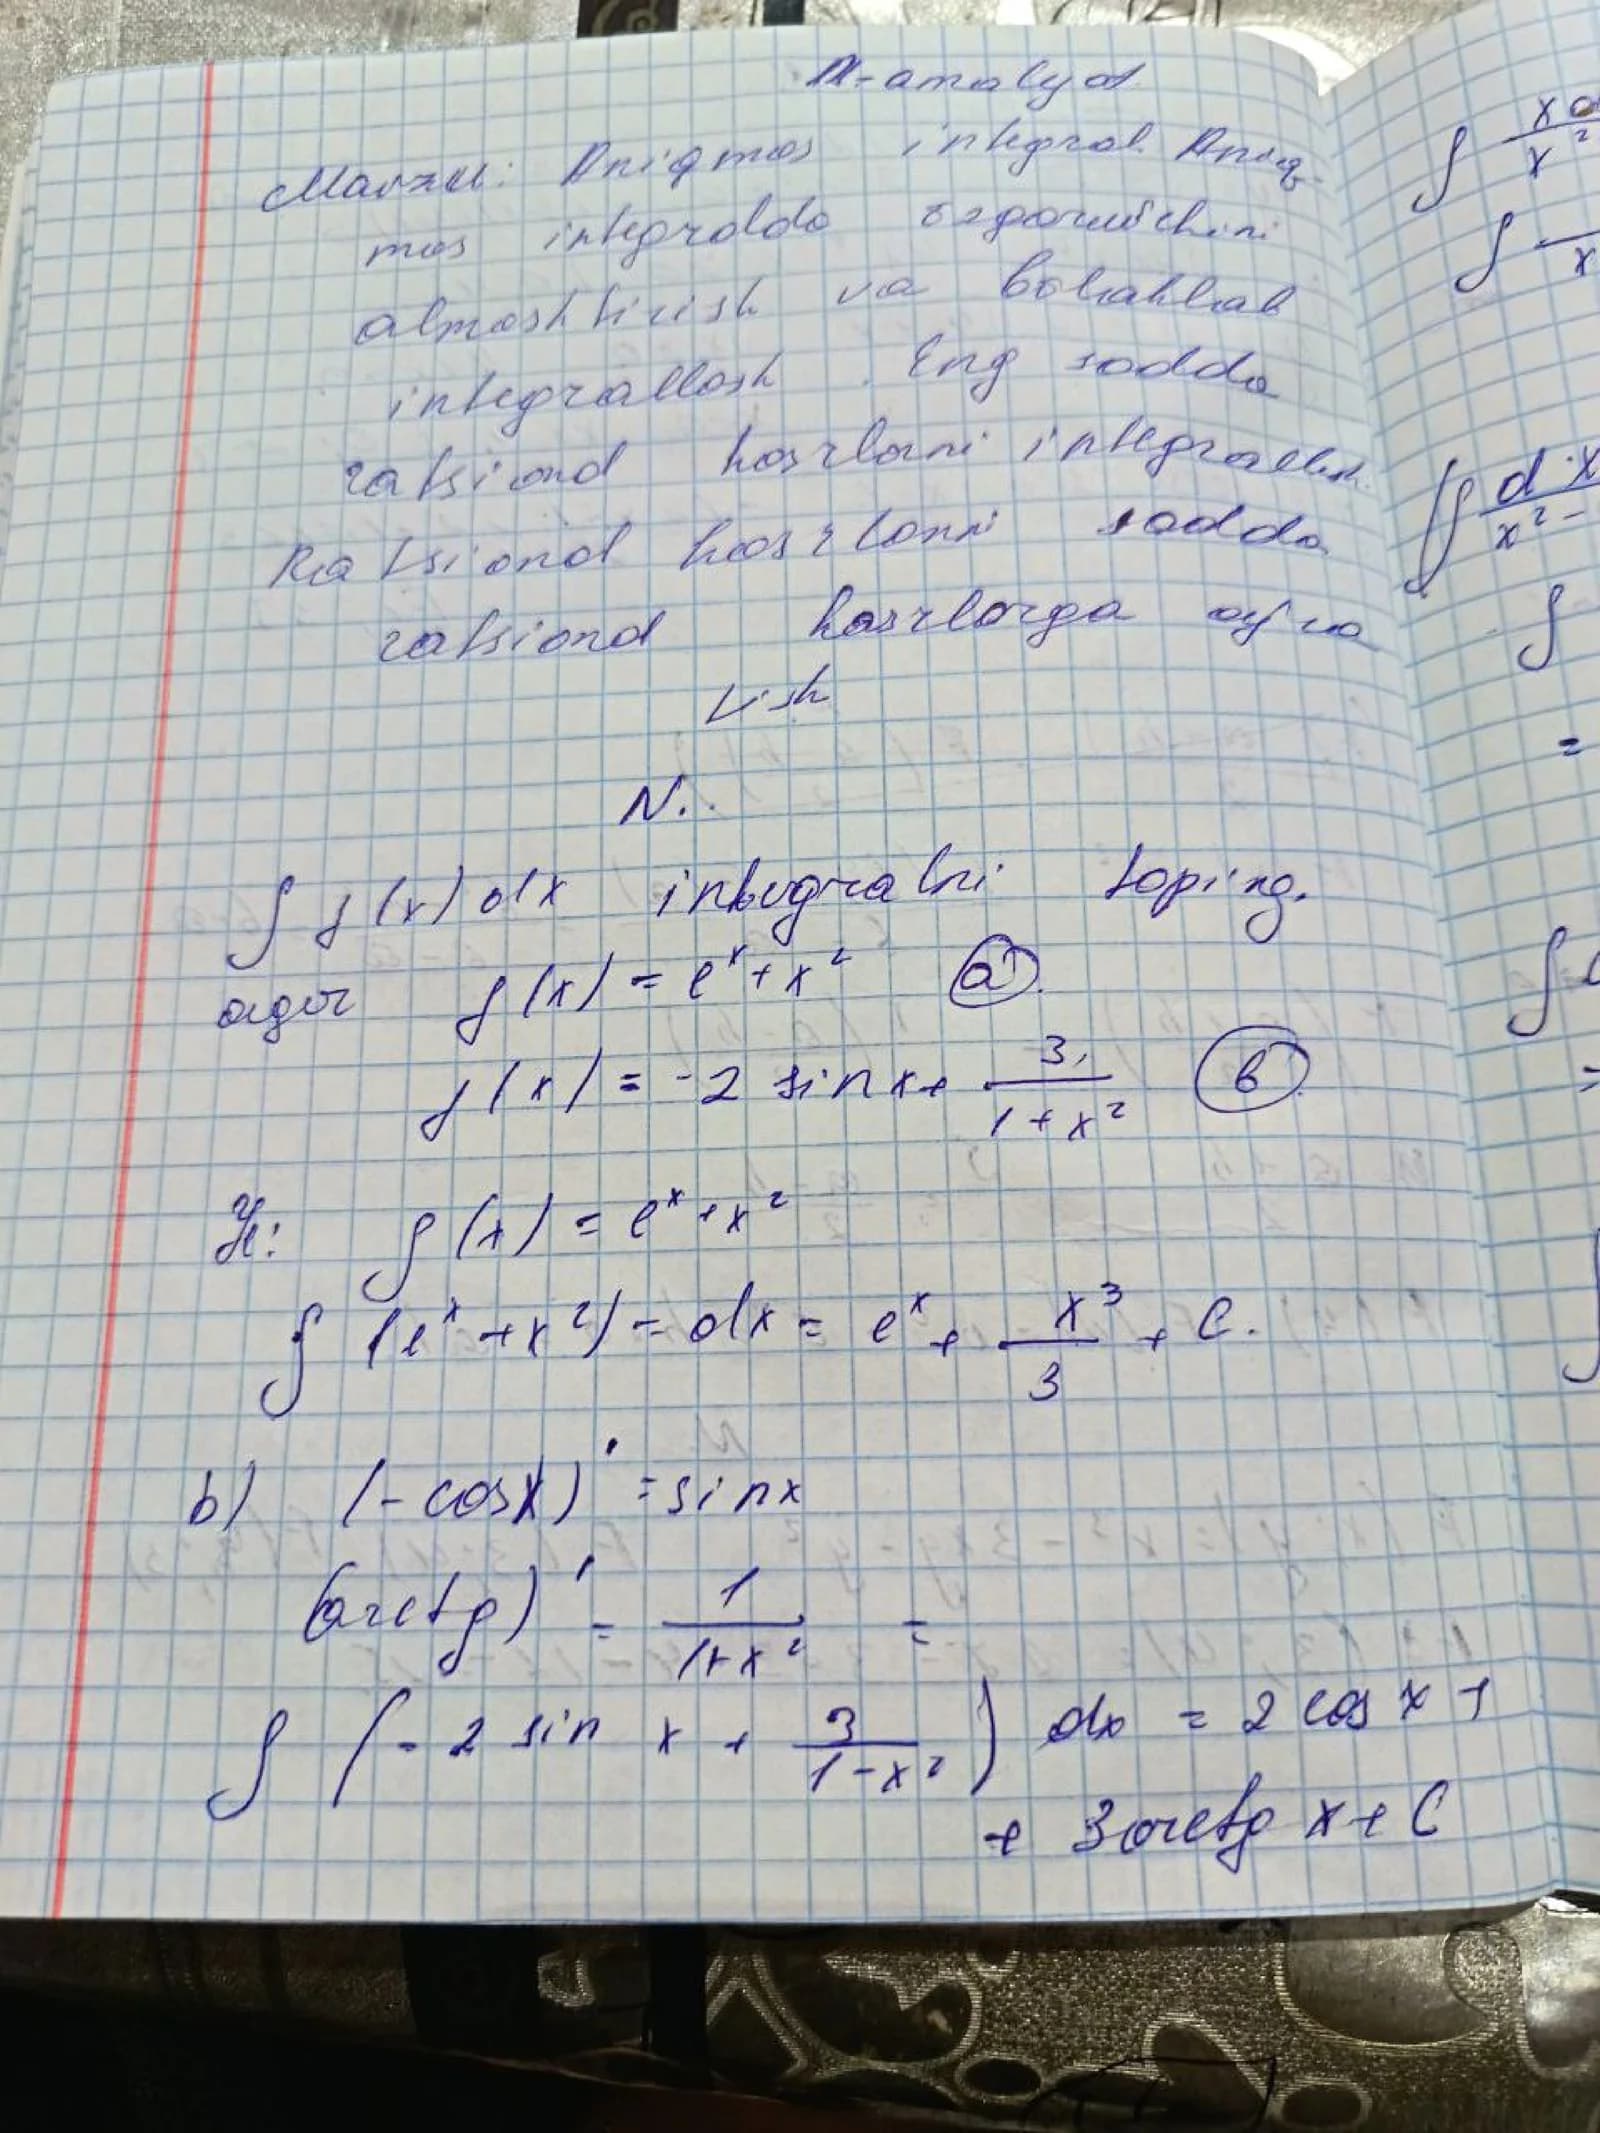 M-analyz
Mavzu: Aniqmas integral. Aniq-
mas integralda ozgaruvchini
almashtirish va bolaklab
integrallash. Eng sodda
ratsional kasrlarni integrallash.
Ratsional kasrlarni sodda
ratsional kasrlarga ajra
tish
N.
∫ f(x) dx integralni toping.
agar f(x) = e^x + x^2 (a)
f(x) = -2 sin x + 3/(1+x^2) (b)
f(x) = e^x + x^2
∫ (e^x + x^2) - dx = e^x + x^3/3 + C.
b) (-cosx)' = sinx
(arctg)' = 1/(1+x^2) =
∫ (-2 sin x + 3/(1-x^2)) dx = 2 cos x +
+ 3 arctg x + C